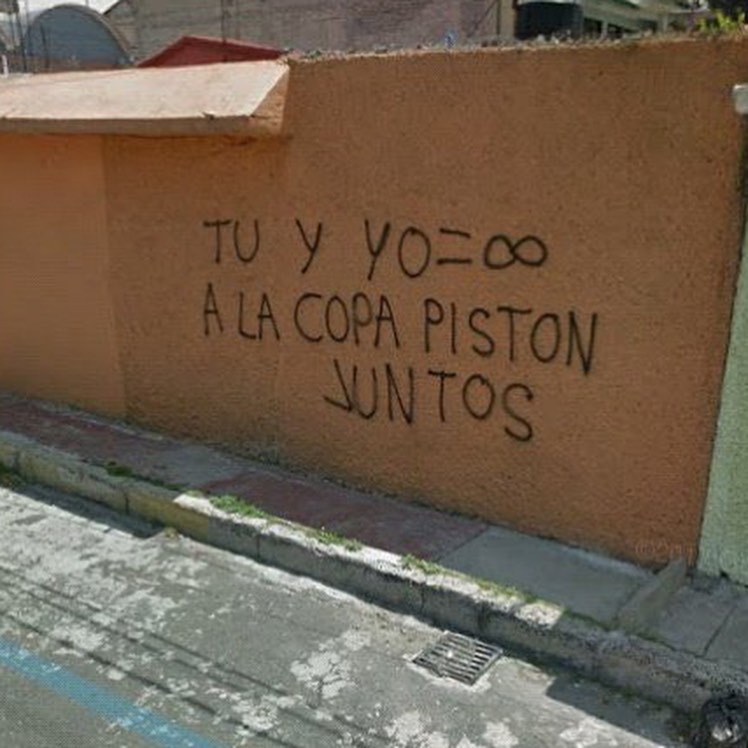 TU Y YO=∞
A LA COPA PISTON
JUNTOS